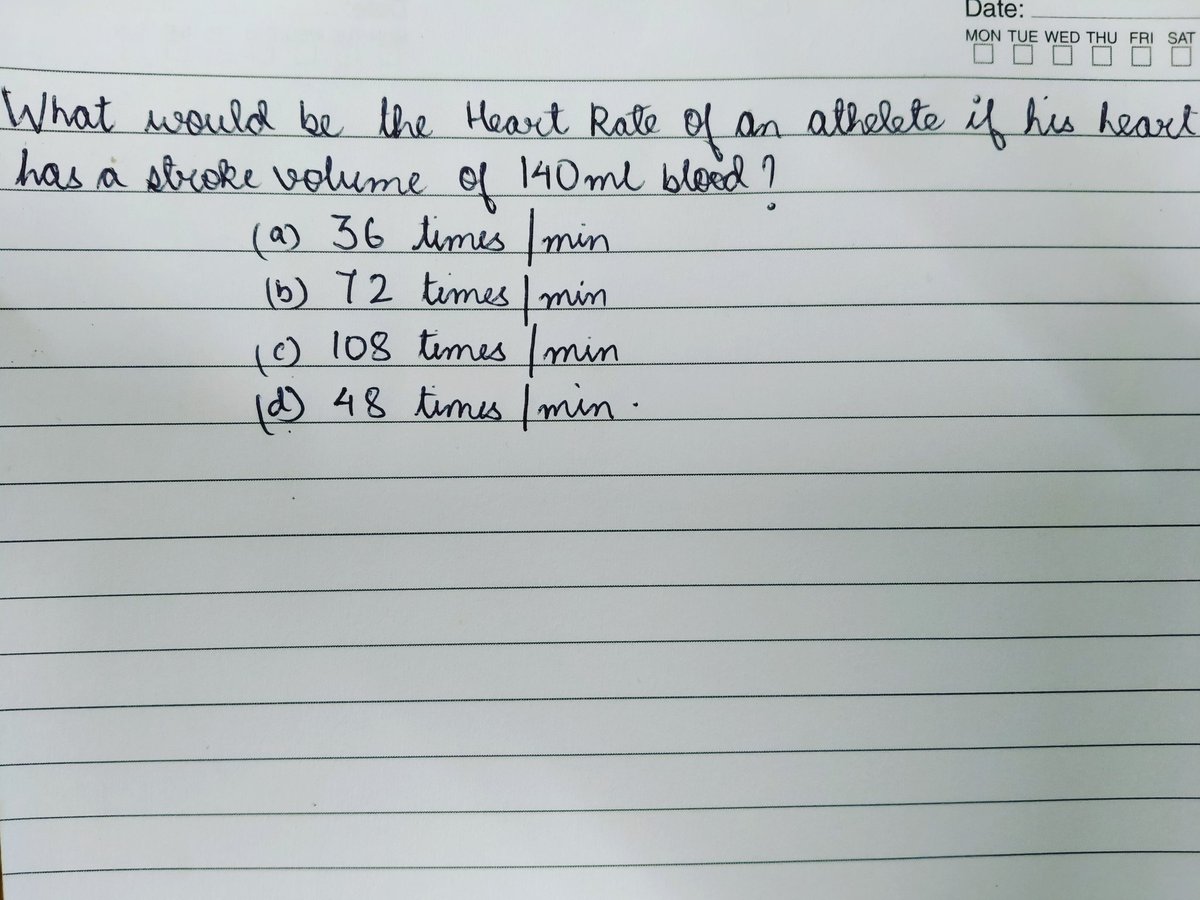 Date:
MON TUE WED THU FRI SAT
What would be the Heart Rate of an athelete if his heart
has a stroke volume of 140ml blood?
(a) 36 times/min
(b) 72 times/min
(c) 108 times/min
(d) 48 times/min.